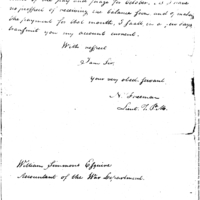 of the pay and forage for October, I have
no prospect of receiving any balance from and of making
the payment for that month, I shall, in a few days
transmit you my account current.
With respect
I am Sir,
your very obed. servant
N. Freeman
Lieut. & P. M.
William Simmons Esquire
Accountant of the War Department.